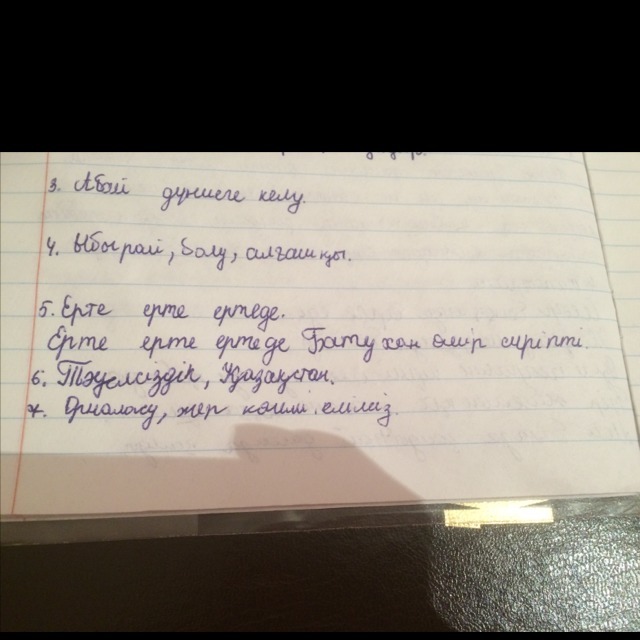 3. Абай дүниеге келу.
4. Ыбырай, болу, алғашқы.
5. Ерте ерте ертеде.
Ерте ерте ертеде Бату хан өмір сүріпті.
6. Тәуелсіздік, Қазақстан.
7. Орналасу, жер көлемі, еліміз.